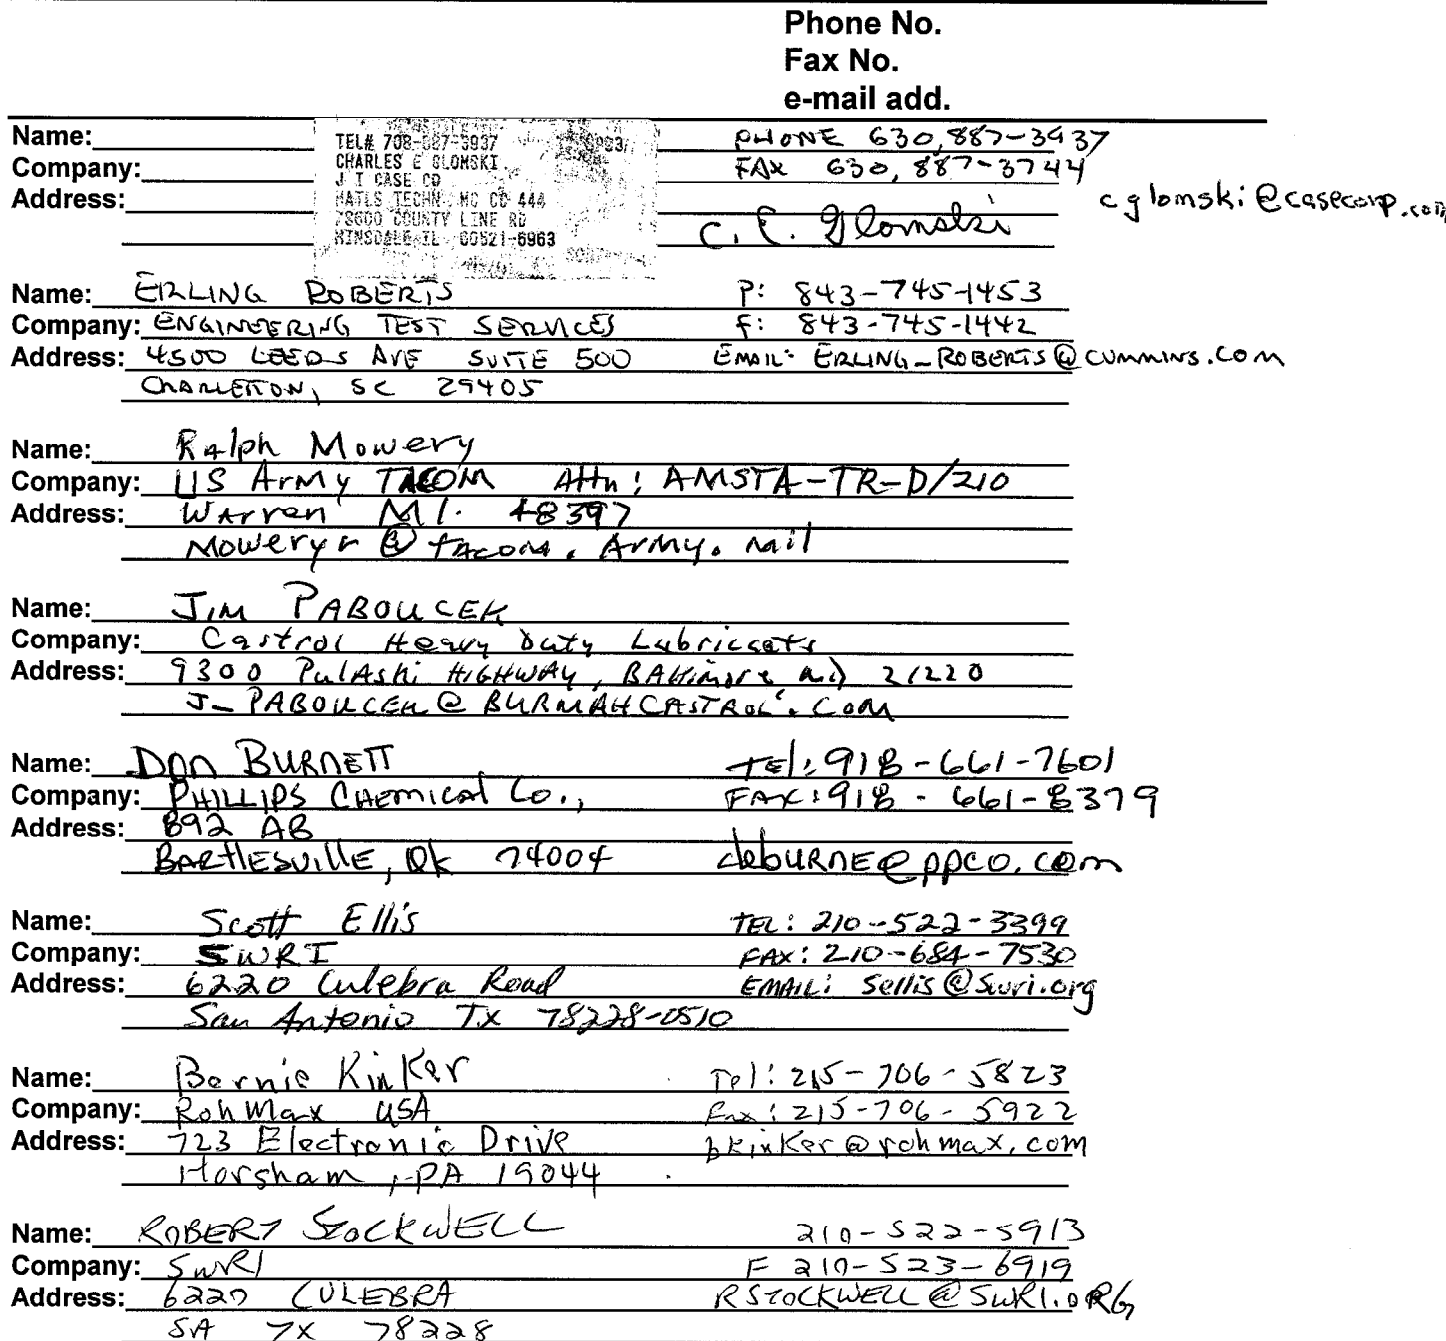 Phone No.
Fax No.
e-mail add.
Name: PHONE 630,887-3937
Company: FAX 630, 887-3744
Address: cglomski@casecorp.com
C. E. Glomski
CHARLES E GLOMSKI
J I CASE CO
MATLS TECHN MC CD 444
COUNTY LINE RD
HINSDALE IL 60521-6963
Name: ERLING ROBERTS P: 843-745-1453
Company: ENGINEERING TEST SERVICES F: 843-745-1442
Address: 4500 LEEDS AVE SUITE 500 EMAIL: ERLING_ROBERTS@CUMMINS.COM
CHARLESTON, SC 29405
Name: Ralph Mowery
Company: US Army TACOM Attn: AMSTA-TR-D/210
Address: Warren MI. 48397
Moweryr@tacom.Army.mil
Name: JIM PABOUCEK
Company: Castrol Heavy Duty Lubricants
Address: 9300 Pulaski HIGHWAY, BAltimore MD 21220
J_PABOUCEK@BURMAHCASTROL.COM
Name: DON BURNETT TEl: 918-661-7601
Company: PHILLIPS CHEMICAl Co., FAX: 918-661-8379
Address: 892 AB
BARTlESVIllE, OK 74004 deburne@ppco.com
Name: Scott Ellis TEL: 210-522-3399
Company: SWRI FAX: 210-684-7530
Address: 6220 Culebra Road EMAIL: Sellis@Swri.org
San Antonio TX 78228-0510
Name: Bernie Kinker Tel: 215-706-5823
Company: RohMax USA Fax: 215-706-5922
Address: 723 Electronic Drive bkinker@rohmax.com
Horsham, PA 19044
Name: ROBERT STOCKWELL 210-522-5913
Company: SwRI F 210-523-6919
Address: 6220 CULEBRA RSTOCKWELL@SWRI.ORG
SA TX 78228